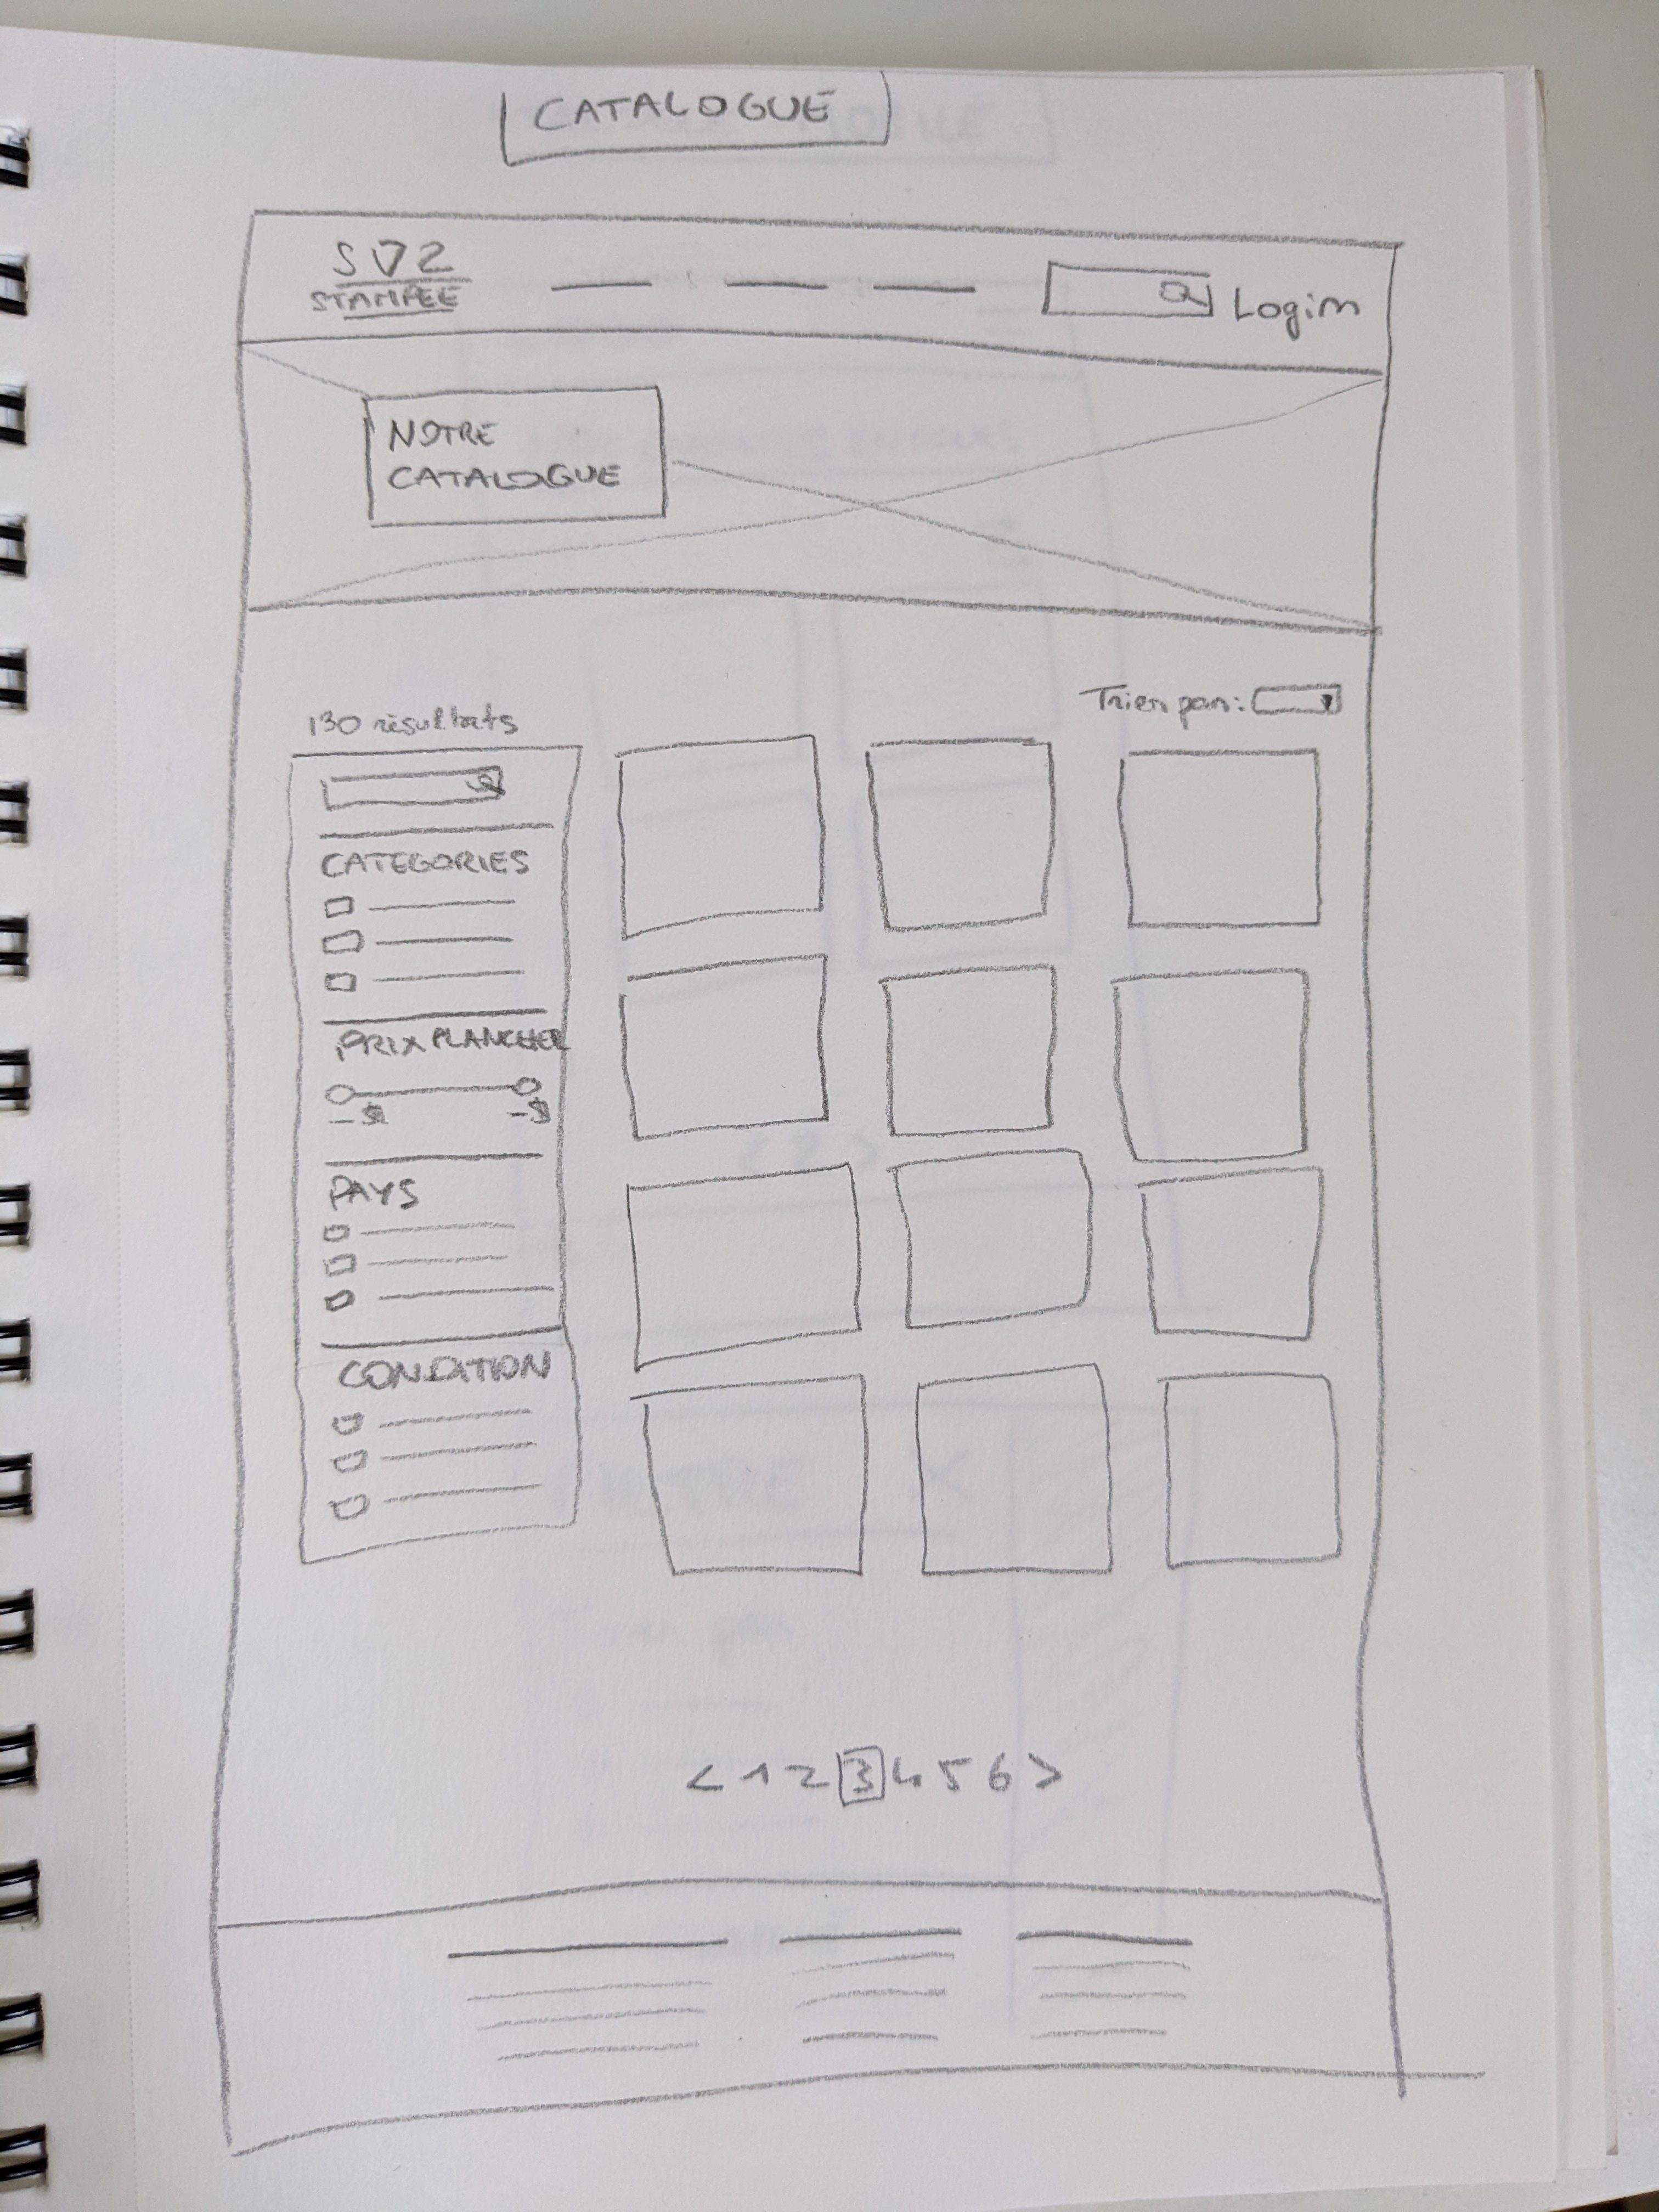 CATALOGUE
STAMPEE
Login
NOTRE
CATALOGUE
130 résultats
Trier par:
CATEGORIES
PRIX PLANCHER
-$ -$
PAYS
CONDITION
< 1 2 3 4 5 6 >